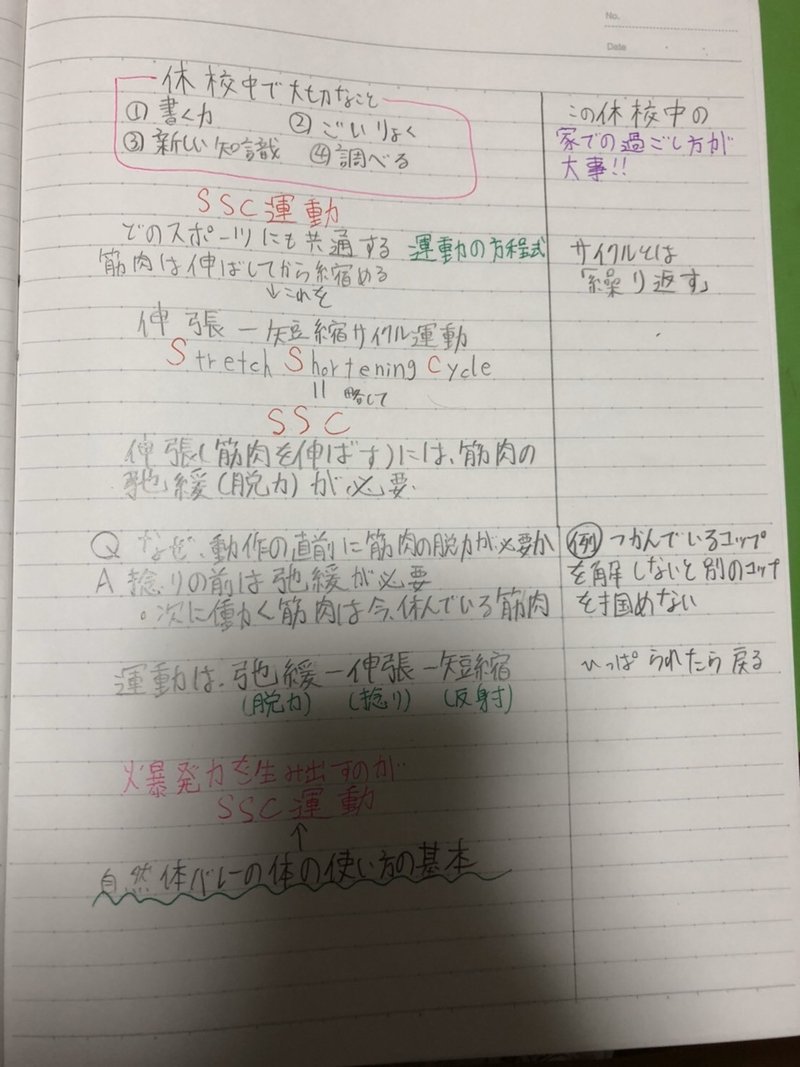 No.
Date
休校中で大切なこと
① 書く力 ② ごいりょく
③ 新しい知識 ④ 調べる
この休校中の
家での過ごし方が
大事!!
SSC運動
どのスポーツにも共通する 運動の方程式
筋肉は伸ばしてから縮める
↓これを
サイクルとは
「繰り返す」
伸張ー短縮サイクル運動
Stretch Shortening Cycle
|| 略して
SSC
伸張(筋肉を伸ばす)には、筋肉の
弛緩(脱力)が必要.
Q なぜ、動作の直前に筋肉の脱力が必要か
A 捻りの前は弛緩が必要
・次に働く筋肉は今、休んでいる筋肉
例 つかんでいるコップ
を解しないと別のコップ
を掴めない
運動は、弛緩ー伸張ー短縮
(脱力) (捻り) (反射)
ひっぱられたら戻る
爆発力を生み出すのが
SSC運動
↑
自然体バレーの体の使い方の基本